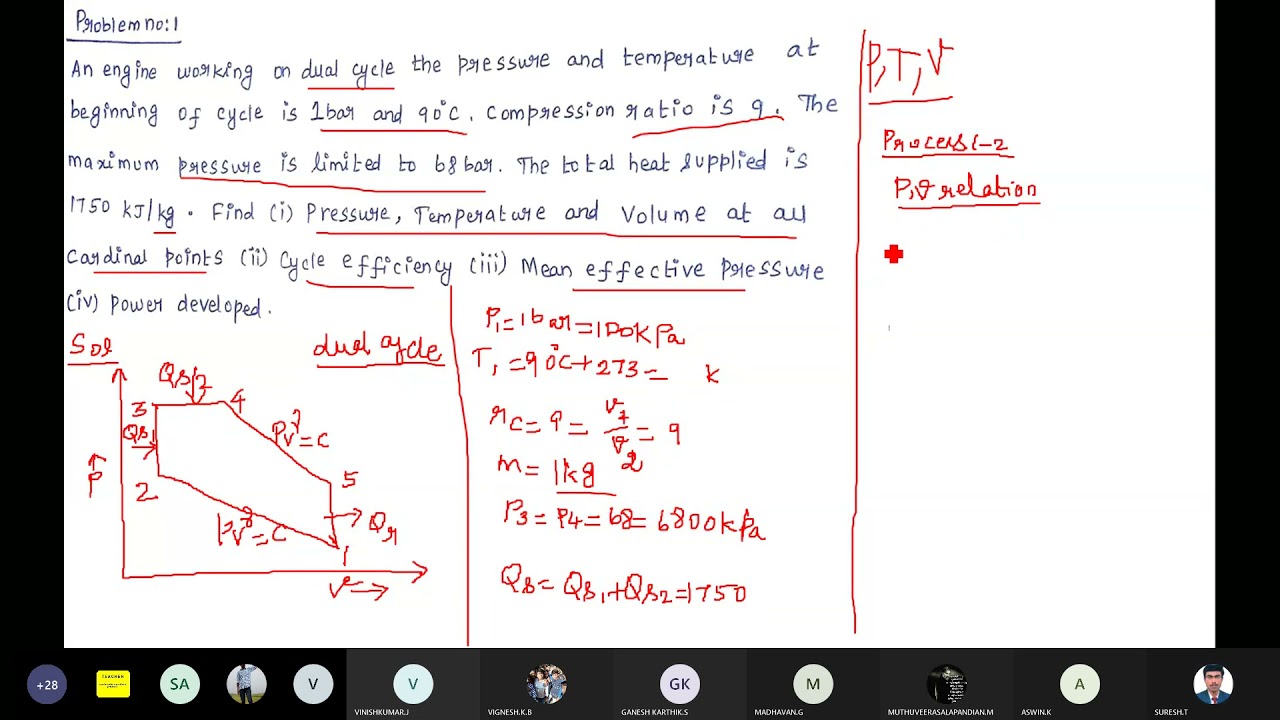 Problem no: 1
An engine working on dual cycle the pressure and temperature at
beginning of cycle is 1bar and 90°C. Compression ratio is 9. The
maximum pressure is limited to 68 bar. The total heat supplied is
1750 kJ/kg. Find (i) Pressure, Temperature and Volume at all
Cardinal points (ii) Cycle efficiency (iii) Mean effective Pressure
(iv) power developed.
Sol
dual cycle
QS2
3
4
QS1
PV^γ=C
P
2
5
PV^γ=C
Qr
1
V
P1=1bar=100kPa
T1=90°C+273= K
rc=9=V1/V2=9
m=1kg
P3=P4=68=6800kPa
Qs=Qs1+Qs2=1750
P,T,V
Process 1-2
P,V relation
+28
TEACHER
SA
V
V
GK
M
A
VINISHKUMAR.J
VIGNESH.K.B
GANESH KARTHIK.S
MADHAVAN.G
MUTHUVEERASALAPANDIAN.M
ASWIN.K
SURESH.T